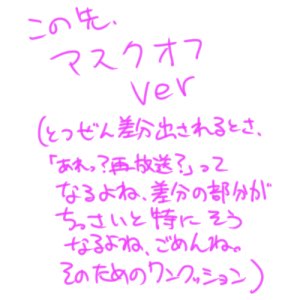 この先、
マスクオフ
ver
(とつぜん差分出されるとさ、
「あれっ?再放送?」って
なるよね、差分の部分が
ちっさいと特にそう
なるよね、ごめんね。
そのためのワンクッション)